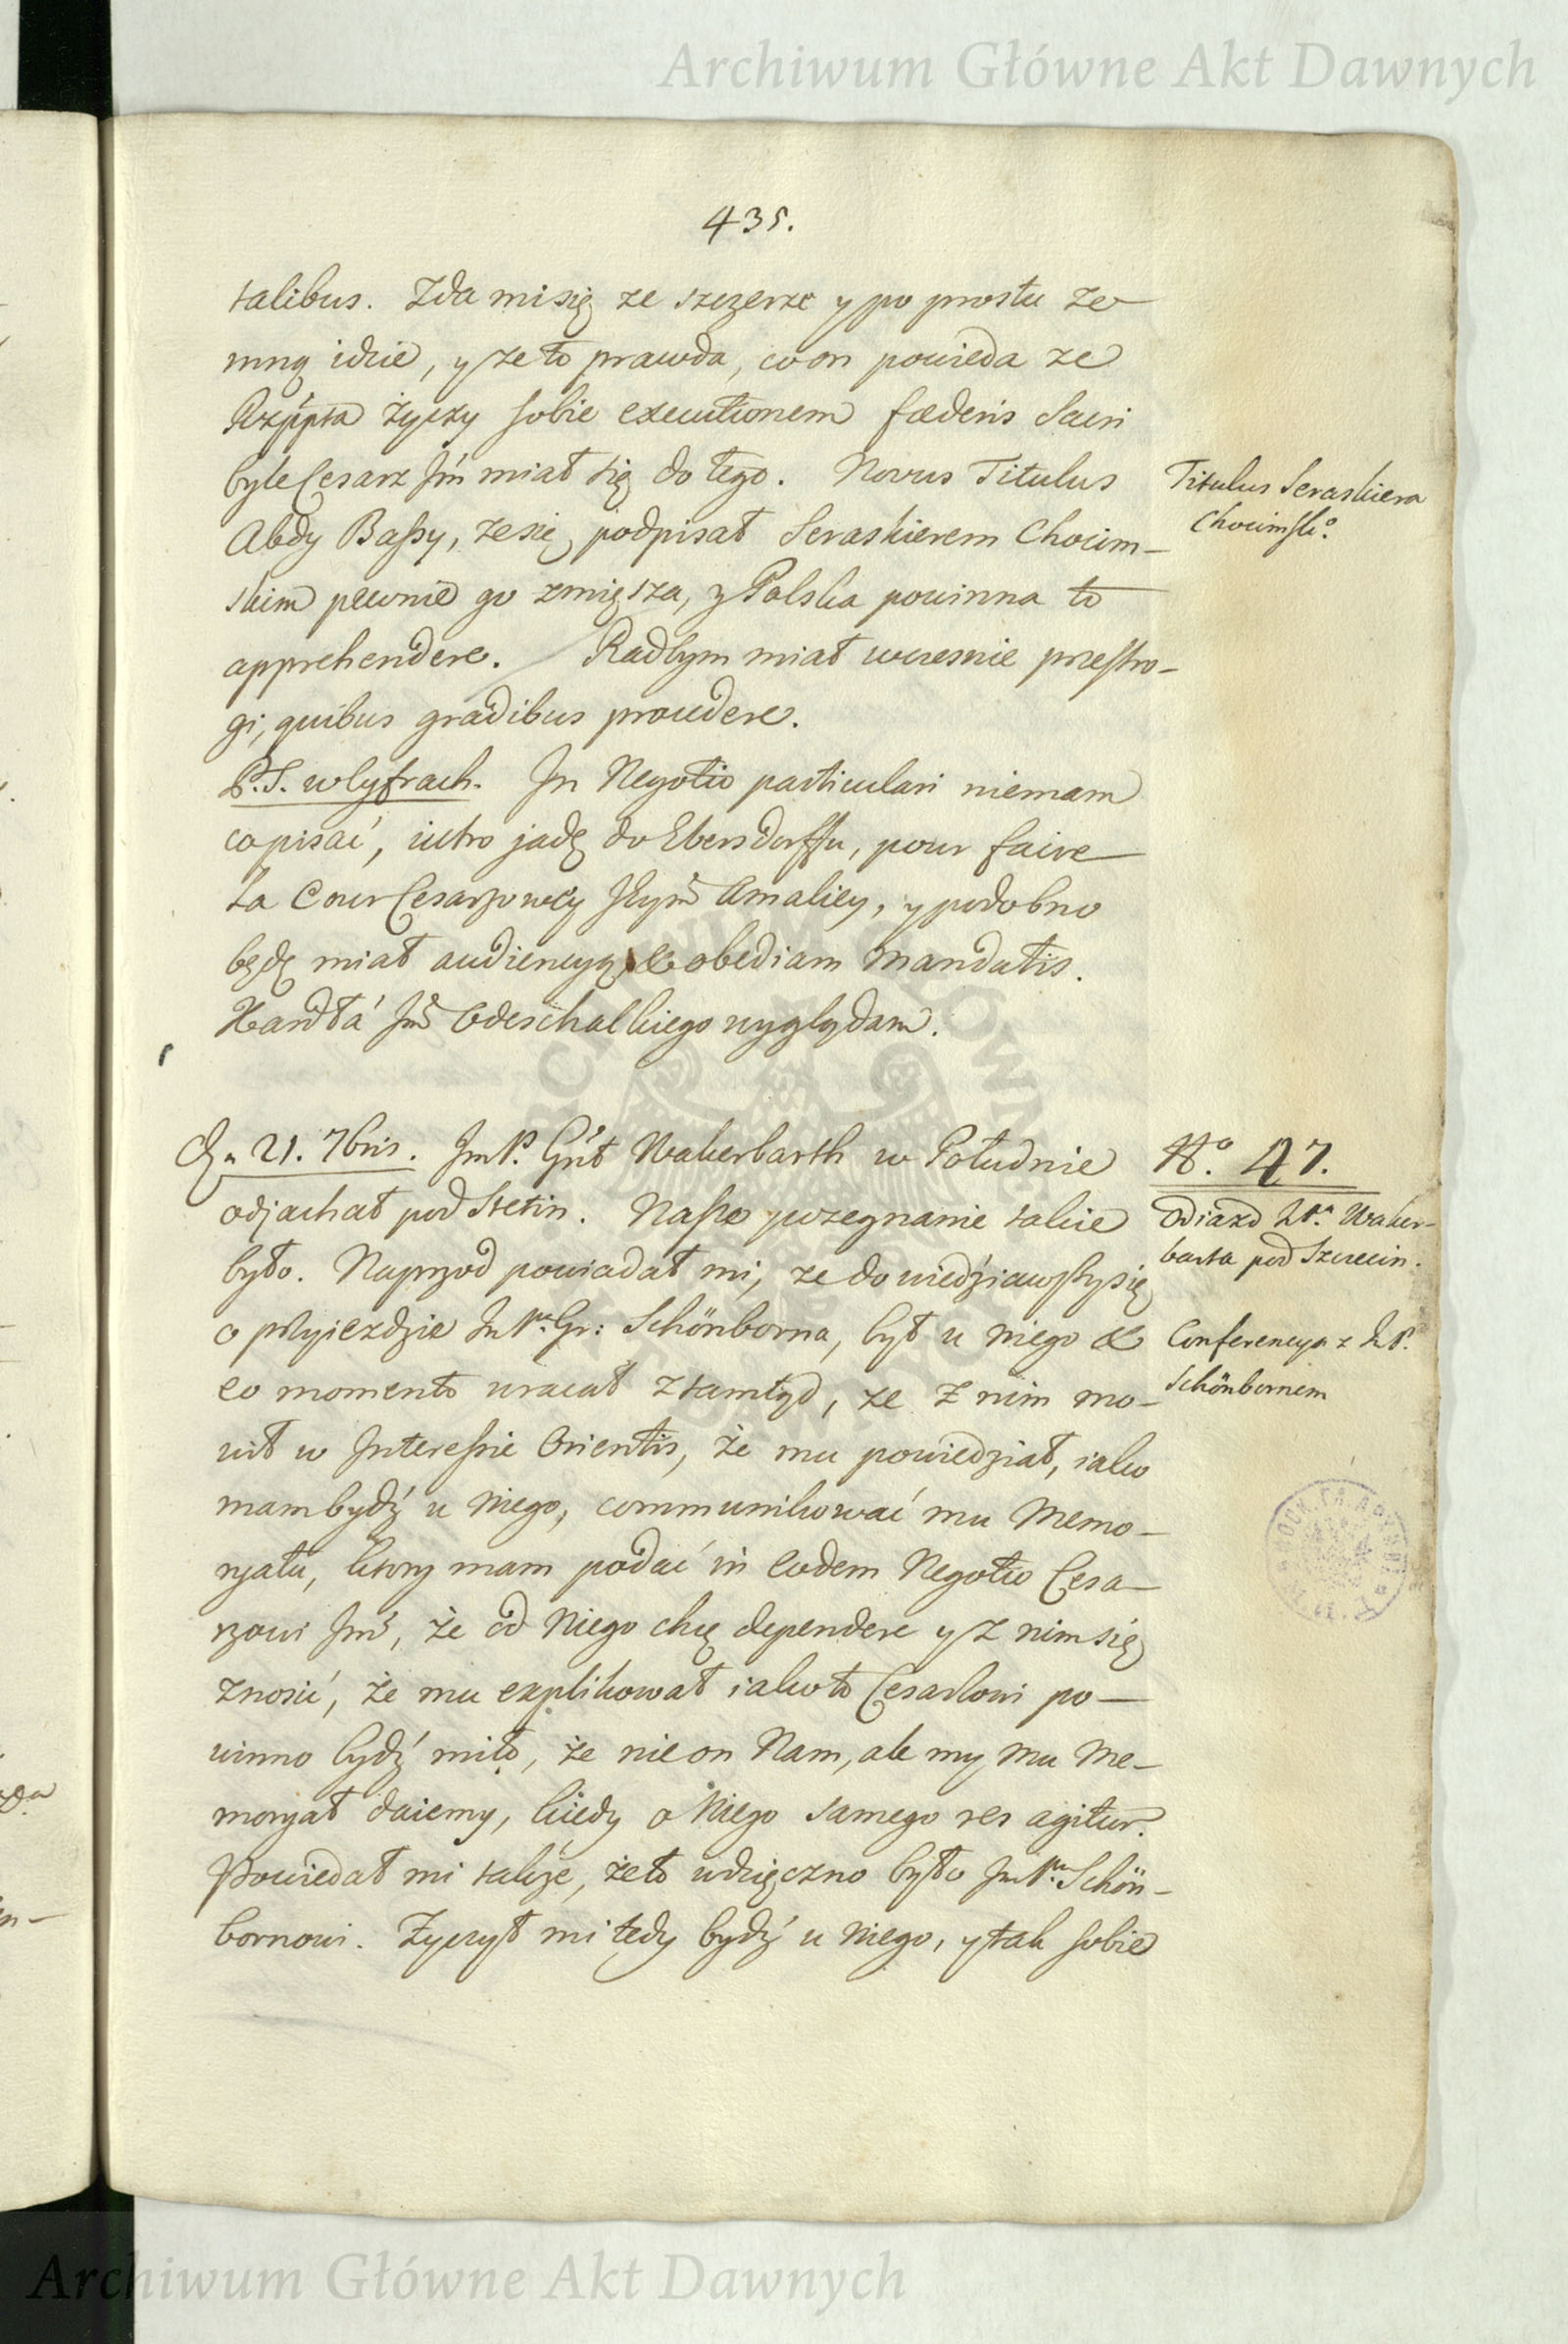 Archiwum Główne Akt Dawnych
435.
talibus. Zda misię ze szczerze y po prostu ze
mną idzie, y ze to prawda, co on powieda ze
Rzptta życzy sobie executionem fœderis Sacri
byle Cesarz Jm̃ miał się do tego. Novus Titulus
Titulus Seraskiera
Chocimsk:º
Abdy Bassy, ze się podpisał Seraskierem Chocim-
skim pewnie go zmięsza, y Polska powinna to
apprehendere. Radbym miał wczesnie przestro-
gi, quibus gradibus procedere.
P.S. w Cyfrach. In Negotio particulari niemam
co pisać, iutro jadę do Ebersdorffu, pour faire
La Cour Cesarzowey Amaliey, y podobno
będę miał audiencyą, & obediam Mandatis.
Xardta Jm̃ Odeschalkiego wyglądam.
21. 7bris. JmP. Gńł Wakerbarth w Południe
Nº. 47.
odjachał pod Stetin. Nasze pozegnanie takie
Odiazd JP.ª Waker-
barta pod Szczecin.
było. Naprzod powiadał mi, ze dowiedziawszy się
o przyiezdzie JmP.ª Gr: Schönborna, był u niego &
Conferencya z JP.
Schönbornem
eo momento wracał ztamtąd, ze z nim mo-
wił w Interessie Orientis, że mu powiedział, iako
mam bydź u Niego, communikować mu Memo-
ryału, ktory mam podać in eodem Negotio Cesa-
rzowi Jm̃, że od Niego chcę dependere y z nim się
znosić, że mu explikował iako to Cesarzowi po-
winno bydź miło, że nie on Nam, ale my Mu Me-
moryał daiemy, kiedy o Niego samego res agitur.
Powiedał mi także, że to wdzięczno było JmP.ᵘ Schön-
bornowi. Zyczył mi tedy bydź u Niego, y tak sobie
Archiwum Główne Akt Dawnych